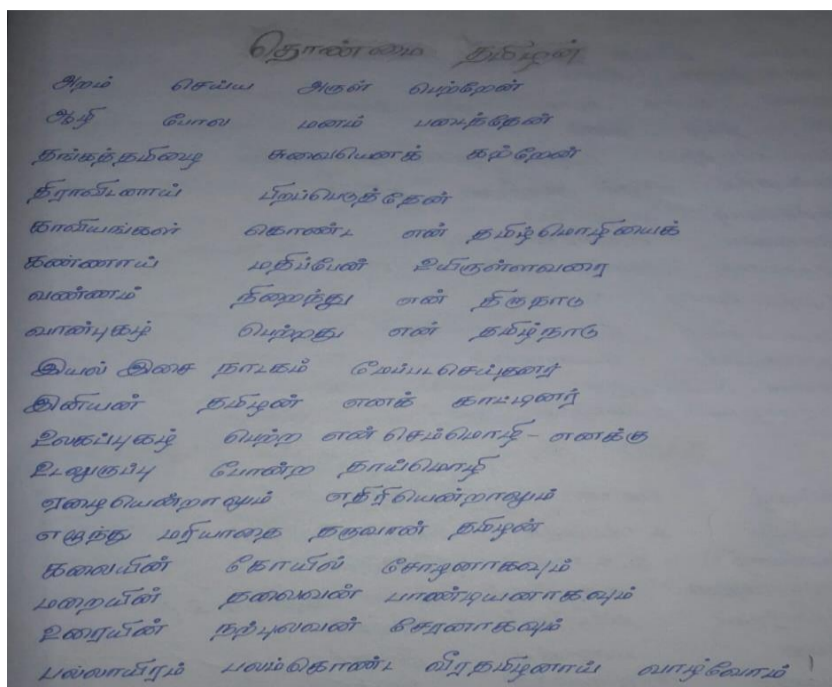 தொண்மை தமிழன்
அறம் செய்ய அருள் பெற்றேன்
ஆழி போல மனம் படைத்தேன்
தங்கத்தமிழை சுவையெனக் கற்றேன்
திராவிடனாய் பிறப்பெடுத்தேன்
காவியங்கள் கொண்ட என் தமிழ்மொழியைக்
கண்ணாய் மதிப்பேன் உயிருள்ளவரை
வண்ணம் நிறைந்து என் திருநாடு
வான்புகழ் பெற்றது என் தமிழ்நாடு
இயல் இசை நாடகம் மேம்படசெய்தனர்
இனியன் தமிழன் எனக் காட்டினர்
உலகப்புகழ் பெற்ற என் செம்மொழி - எனக்கு
உடலுருப்பு போன்ற தாய்மொழி
ஏழையென்றாலும் எதிரியென்றாலும்
எழுந்து மரியாதை தருவான் தமிழன்
கலையின் கோயில் சோழனாகவும்
மறையின் தலைவன் பாண்டியனாகவும்
உரையின் நற்புலவன் சேரனாகவும்
பல்லாயிரம் பலம்கொண்ட வீரதமிழனாய் வாழ்வோம்